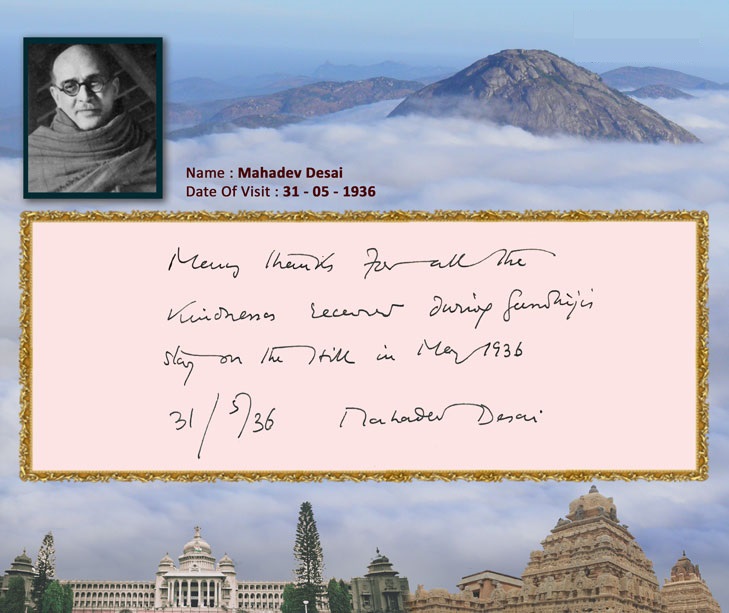 Name : Mahadev Desai
Date Of Visit : 31 - 05 - 1936
Many thanks for all the
kindnesses received during Gandhiji's
stay on the Hill in May 1936
31/5/36 Mahadev Desai